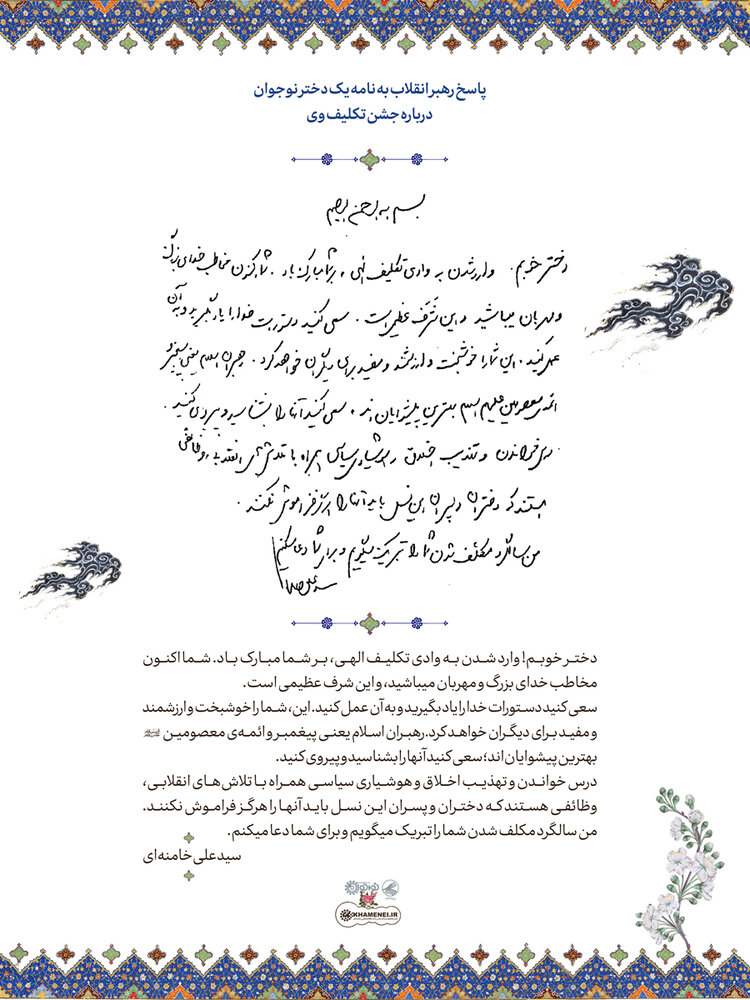 پاسخ رهبر انقلاب به نامه یک دختر نوجوان
درباره جشن تکلیف وی
بسم الله الرحمن الرحیم
دختر خوبم. وارد شدن به وادی تکلیف الهی، بر شما مبارک باد. شما اکنون مخاطب خدای بزرگ
و مهربان میباشید و این شرف عظیمی است. سعی کنید دستورات خدا را یاد بگیرید و به آن
عمل کنید. این شما را خوشبخت و ارزشمند و مفید برای دیگران خواهد کرد. رهبران اسلام یعنی پیغمبر و
ائمه‌ی معصومین علیهم السلام بهترین پیشوایان اند. سعی کنید آنها را بشناسید و پیروی کنید.
درس خواندن و تهذیب اخلاق و هوشیاری سیاسی همراه با تلاش های انقلابی، وظائفی
هستند که دختران و پسران این نسل باید آنها را هرگز فراموش نکنند.
من سالگرد مکلف شدن شما را تبریک میگویم و برای شما دعا میکنم
سید علی خامنه‌ای
دختر خوبم! وارد شدن به وادی تکلیف الهی، بر شما مبارک باد. شما اکنون
مخاطب خدای بزرگ و مهربان میباشید، و این شرف عظیمی است.
سعی کنید دستورات خدا را یاد بگیرید و به آن عمل کنید. این، شما را خوشبخت و ارزشمند
و مفید برای دیگران خواهد کرد. رهبران اسلام یعنی پیغمبر و ائمه‌ی معصومین
بهترین پیشوایان اند؛ سعی کنید آنها را بشناسید و پیروی کنید.
درس خواندن و تهذیب اخلاق و هوشیاری سیاسی همراه با تلاش های انقلابی،
وظائفی هستند که دختران و پسران این نسل باید آنها را هرگز فراموش نکنند.
من سالگرد مکلف شدن شما را تبریک میگویم و برای شما دعا میکنم.
سید علی خامنه‌ای
KHAMENEI.IR